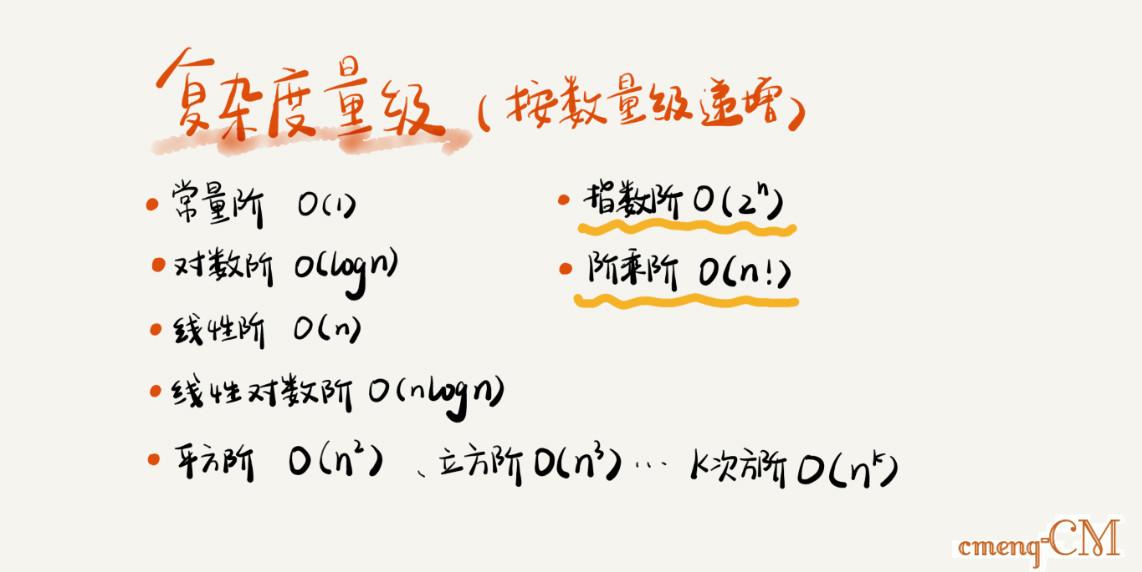 复杂度量级（按数量级递增）
常量阶 O(1)
对数阶 O(logn)
线性阶 O(n)
线性对数阶 O(nlogn)
平方阶 O(n²)、立方阶 O(n³)… K次方阶 O(nᵏ)
指数阶 O(2ⁿ)
阶乘阶 O(n!)
cmeng-CM